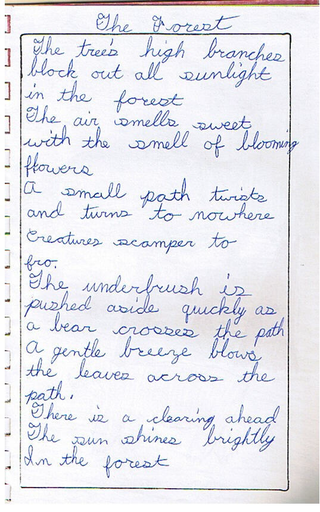 The Forest
The tree's high branches
block out all sunlight
in the forest
The air smells sweet
with the smell of blooming
flowers
A small path twists
and turns to nowhere
Creatures scamper to
fro.
The underbrush is
pushed aside quickly as
a bear crosses the path
A gentle breeze blows
the leaves across the
path.
There is a clearing ahead
The sun shines brightly
In the forest